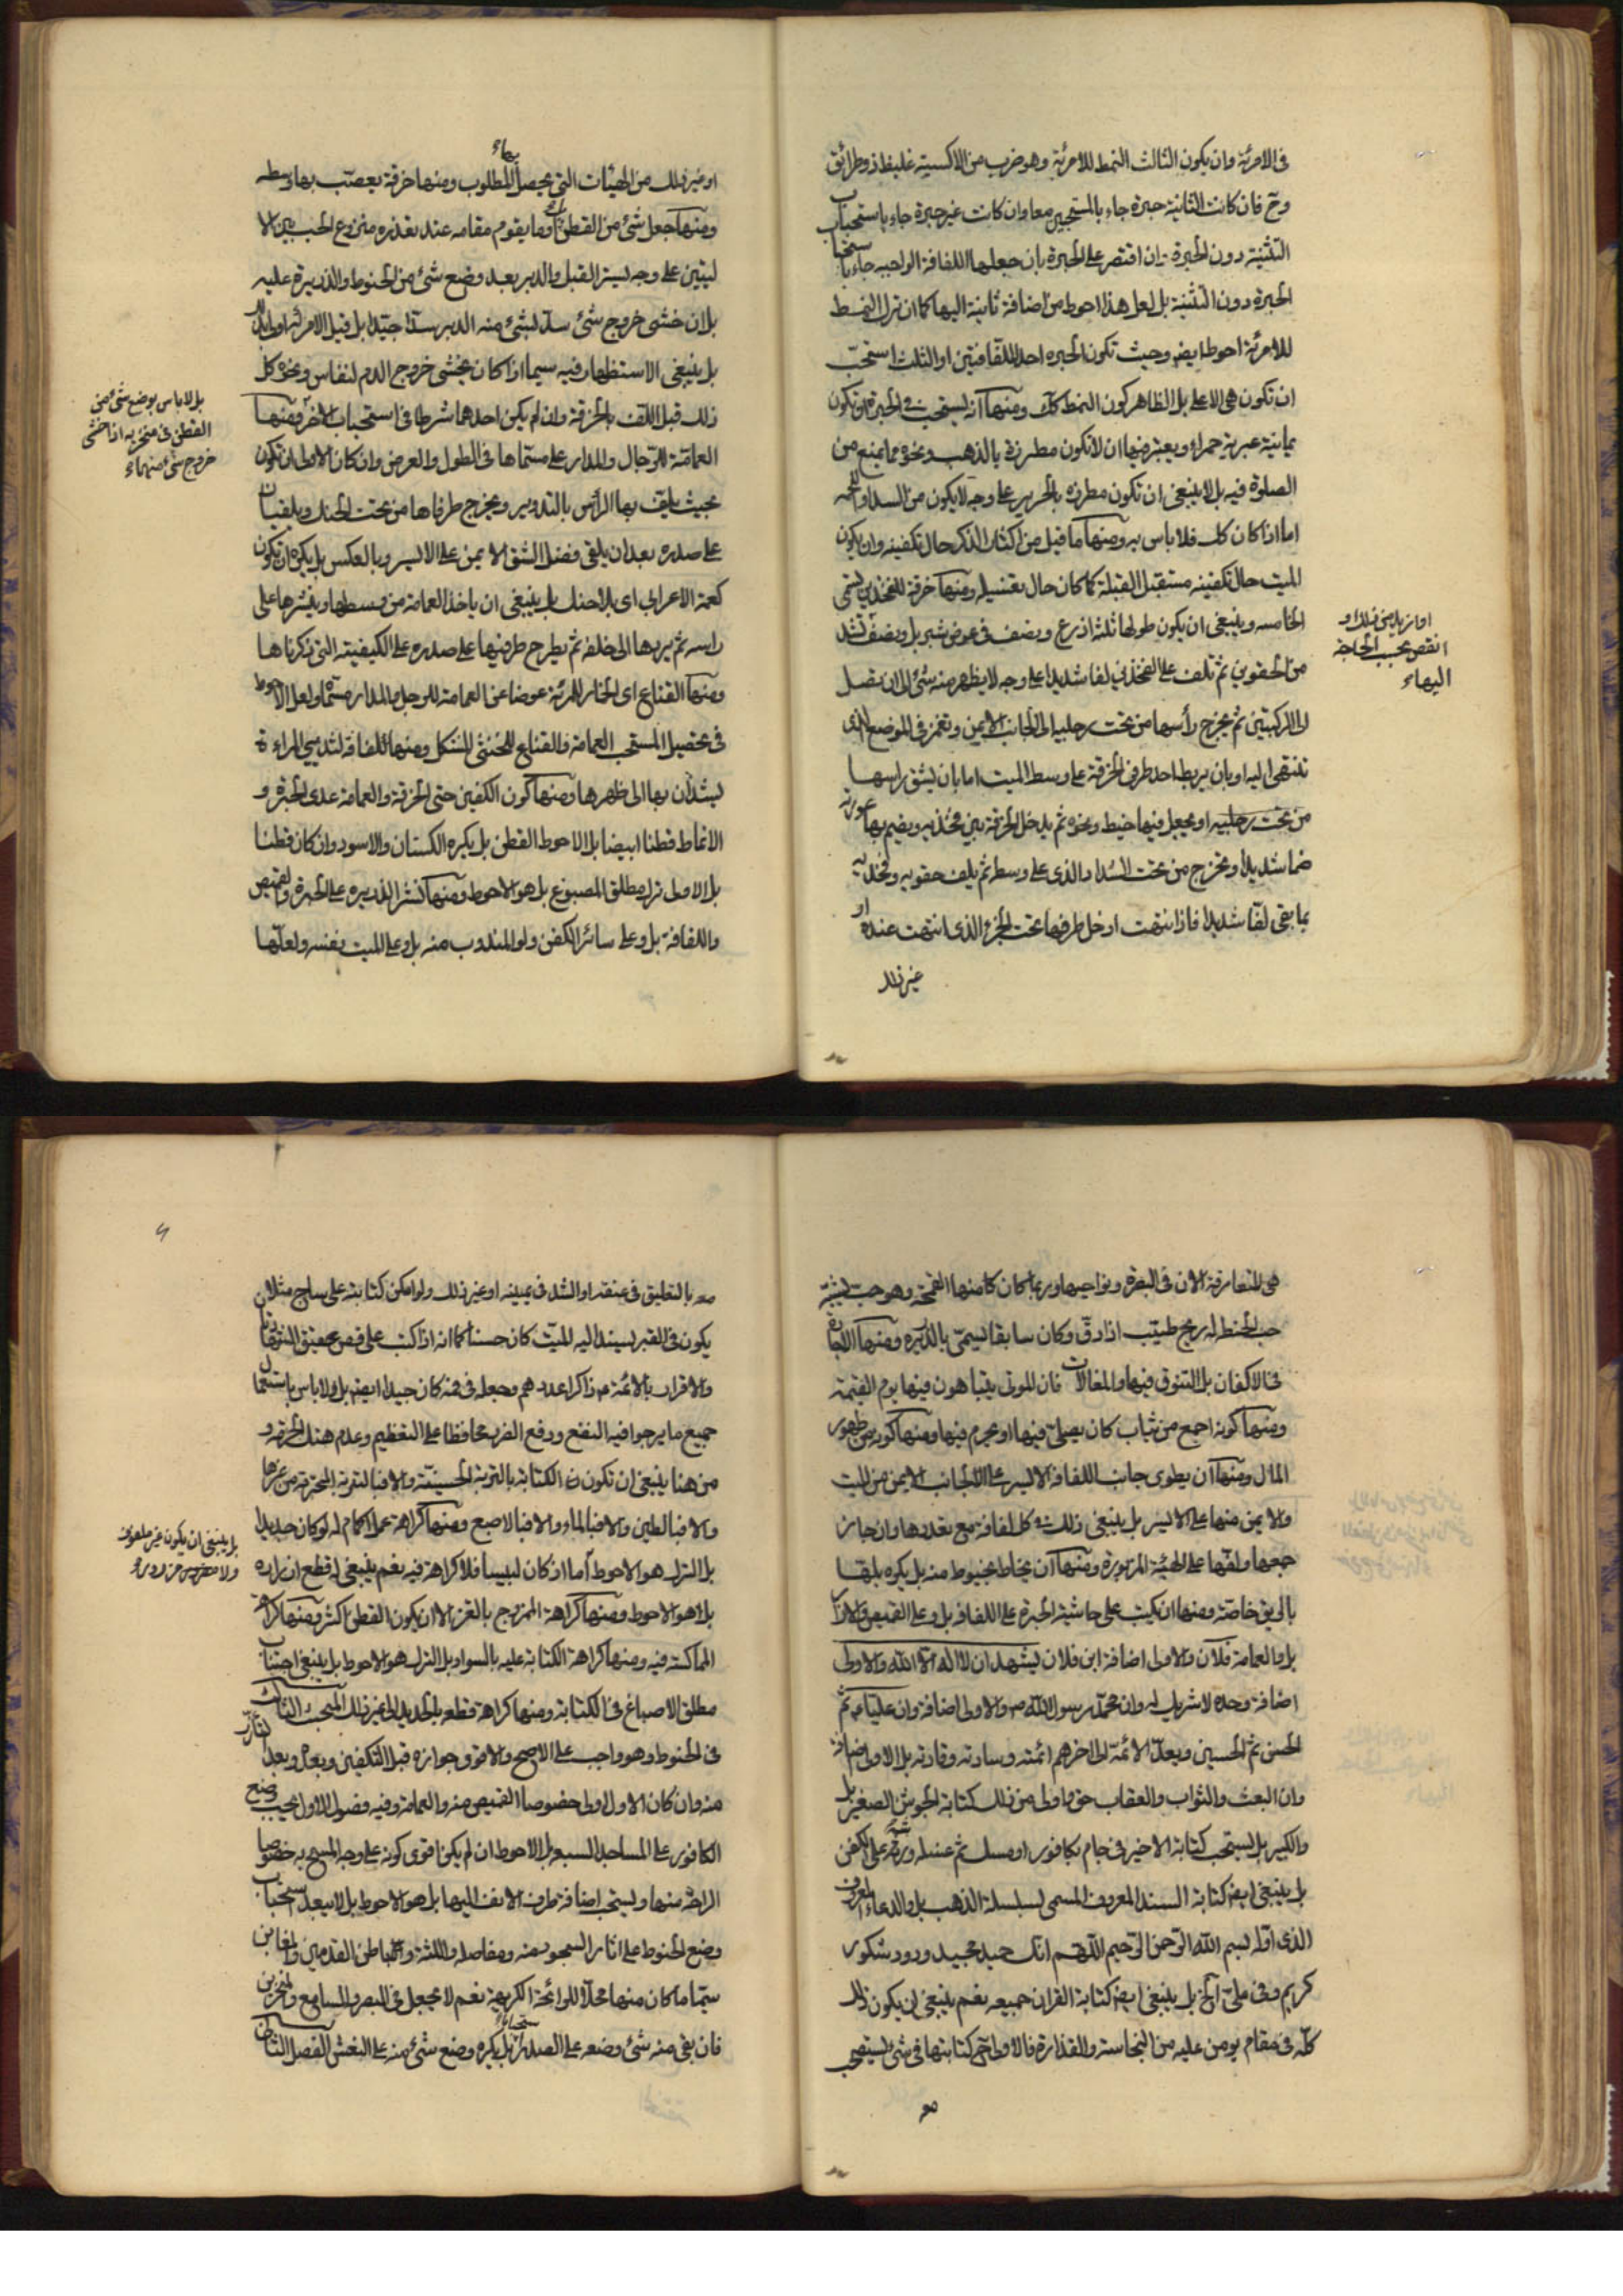 فى الامرئة وان يكون الثالث النمط للامرئة وهو ضرب من الاكسية غليظ ذو طرائق
وح فان كانت الثانية حبرة جاء بالمستحبين معا وان كانت غير حبرة جاء باستحباب
التثنية دون الحبرة وان اقتصر على الحبرة بان جعلها اللفافة الواجبه جاء باستحباب
الحبرة دون التثنية بل لعل هذا احوط من اضافة ثانية اليها كما ان ترك النمط
للامرئة احوط ايضا وحيث تكون الحبره احد اللفافتين او الثلث استحب
ان تكون هى الاعلى بل الظاهر كون النمط كك ومنها انه يستحب فى الحبرة ان تكون
يمانية عبرية حمراء ويعتبر فيها ان لا تكون مطرزة بالذهب ونحوه مما يمنع من
الصلوة فيه بل لا ينبغى ان تكون مطرزه بالحرير على وجه لا يكون من السدا واللحمه
اما اذا كان كك فلا باس به ومنها ما قيل من اكثار الذكر حال تكفينه وان يكون
الميت حال تكفينه مستقبل القبلة كما كان حال تغسيله ومنها خرقة للفخذين يسمى
الخامسه وينبغى ان يكون طولها ثلثة اذرع ونصف فى عرض شبر بل ونصف تشد
من الحقوين ثم تلف على الفخذين لفا شديدا على وجه لا يظهر منه شئ الى ان تصل
الى الركبتين ثم يخرج رأسها من تحت رجليه الى الجانب الايمن وتغمز فى الموضع الذى
تنتهى اليه او بان يربط احد طرفى الخرقة على وسط الميت اما بان يشق راسها
من تحت رجليه او يجعل فيها خيط ونحوه ثم يدخل الخرقة بين فخذيه ويضم بها عورته
ضما شديدا ويخرج من تحت الشداد الذى على وسطه ثم يلف حقويه وفخذيه
بما بقى لفا شديدا فاذا انتهت ادخل طرفها تحت الجزء الذى انتهت عنده او
غير ذلك
او ازيد من ذلك او
انقص بحسب الحاجة
اليها
او غير ذلك من الهيئات التى يحصل بها المطلوب ومنها خرقة يعصب بها وسطه
ومنها جعل شئ من القطن او ما يقوم مقامه عند تعذره منزوع الحب بين الا
ليتين على وجه يستر القبل والدبر بعد وضع شئ من الحنوط والذريرة عليه
بل ان خشى خروج شئ سد بشئ منه الدبر سدا جيدا بل قبل الامرئة اولى بذلك
بل ينبغى الاستظهار فيه سيما اذا كان يخشى خروج الدم لنفاس ونحوه كل
ذلك قبل اللف بالخرقة وان لم يكن احدهما شرطا فى استحباب الاخر ومنها
العمامة للرجال والمدار على مسماها فى الطول والعرض وان كان الاولى ان تكون
بحيث يلف بها الراس بالتدوير ويخرج طرفاها من تحت الحنك ويلقيان
على صدره بعد ان يلقى فضل الشق الايمن على الايسر وبالعكس بل يكره ان تكون
كعمة الاعرابى اى بلا حنك بل ينبغى ان ياخذ العمامة من وسطها وينشرها على
راسه ثم يردها الى خلفه ثم يطرح طرفيها على صدره على الكيفية التى ذكرناها
ومنها القناع اى الخمار للامرئة عوضا عن العمامة للرجل والمدار مسماه ولعل الاحوط
فى تحصيل المستحب العمامة والقناع للخنثى المشكل ومنها لفافة لثديي المراءة
يشدان بها الى ظهرها ومنها كون الكفن حتى الخرقة والعمامة عدى الحبرة و
الانماط قطنا ابيضا بل الاحوط القطن بل يكره الكتان والاسود وان كان قطنا
بل الاولى ترك مطلق المصبوغ بل هو الاحوط ومنها نشر الذريره على الحبرة والقميص
واللفافة بل وعلى سائر الكفن ولو المندوب منه بل وعلى الميت نفسه ولعلها
بل لا باس بوضع شئ من
القطن فى منخريه اذا خشى
خروج شئ منهما
هى المتعارفة الان فى البصرة ونواحيها وربما كان كامنها القمحة وهو حب يشبه
حب الحنطه له ريح طيب اذا دق وكان سابقا يسمى بالذريره ومنها الاجادة
فى الاكفان بل التنوق فيها والمغالات فان الموتى يتباهون فيها يوم القيمة
ومنها كونه اجمع من ثياب كان يصلى فيها او يحرم فيها ومنها كونه من طهور
المال ومنها ان يطوى جانب اللفافة الايسر على الجانب الايمن من الميت
والايمن منها على الايسر بل ينبغى ذلك فى كل لفافة مع تعددها وان جاز
جمعها ولفها على الهيئة المزبورة ومنها ان يخاط بخيوط منه بل يكره بلها
بالريق خاصة ومنها ان يكتب على حاشية الحبرة على اللفافة بل وعلى القميص والازار
بل والعمامة فلان والاولى اضافة ابن فلان يشهد ان لا اله الا الله والاولى
اضافة وحده لا شريك له وان محمدا رسول الله ص والاولى اضافة وان عليا ع ثم
الحسن ثم الحسين ويعد الائمة الى اخرهم ائمته وسادته وقادته بل الاولى اضافة
وان البعث والثواب والعقاب حق واولى من ذلك كتابة الجوشن الصغير بل
والكبير بل يستحب كتابة الاخير فى جام بكافور او مسك ثم غسله ورشه على الكفن
بل ينبغى ايضا كتابة السند المعروف المسمى بسلسلة الذهب بل والدعاء المعروف
الذى اوله بسم الله الرحمن الرحيم اللهم انك حميد مجيد ودود شكور
كريم وفى ملى الخ بل ينبغى ايضا كتابة القران جميعه نعم ينبغى ان يكون ذلك
كله فى مقام يومن عليه من النجاسة والقذارة فالاولى ح كتابتها فى شئ يستصحب
معه
معه بالتعليق فى عنقه او الشد فى يمينه او غير ذلك ولو امكن كتابته على ساج مثلا ان
يكون فى القبر يسند اليه الميت كان حسنا كما انه اذا كتب على فص عقيق الشهادتان
والاقرار بالائمة ع ذاكرا عددهم وجعله فى فمه كان جيدا ايضا بل ولا باس باستعمال
جميع ما يرجو فيه النفع ودفع الضر محافظا على التعظيم وعدم هتك الحرمة و
من هنا ينبغى ان تكون الكتابة بالتربة الحسينية والا فبالتربة المحترمة من غيرها
والا فبالطين والا فبالماء والا فبالاصبع ومنها كراهة عمل اكمام له لو كان جديدا
بل الترك هو الاحوط اما اذ كان لبيسا فلا كراهة فيه نعم ينبغى له قطع ازراره
بل هو الاحوط ومنها كراهة الممزوج بالقز الا ان يكون القطن اكثر ومنها كراهة
المماكسة فيه ومنها كراهة الكتابة عليه بالسواد بل الترك هو الاحوط بل ينبغى اجتناب
مطلق الاصباغ فى الكتابة ومنها كراهة قطعه بالحديد الى غير ذلك المبحث الثالث
فى الحنوط وهو واجب على الاصح والاقوى جوازه قبل التكفين وبعده وبعد
منه وان كان الاول اولى خصوصا القميص منه والعمامة وفيه فصول الاول يجب وضع
الكافور على المساجد السبعه بل الاحوط ان لم يكن اقوى كونه على وجه المسح به خصوصا
الراحة منها ويستحب اضافة طرف الانف اليها بل هو الاحوط بل لا يبعد استحباب
وضع الحنوط على اثار السجود منه ومفاصله واللثة وباطن القدمين والمغابن
سيما ما كان منها محلا للرائحة الكريهة نعم لا يجعل فى البصر والمسامع والمنخرين
فان بقى منه شئ وضعه على الصدر بل يكره وضع شئ منه على النعش الفصل الثانى
بل ينبغى ان يكون غير ملفوف